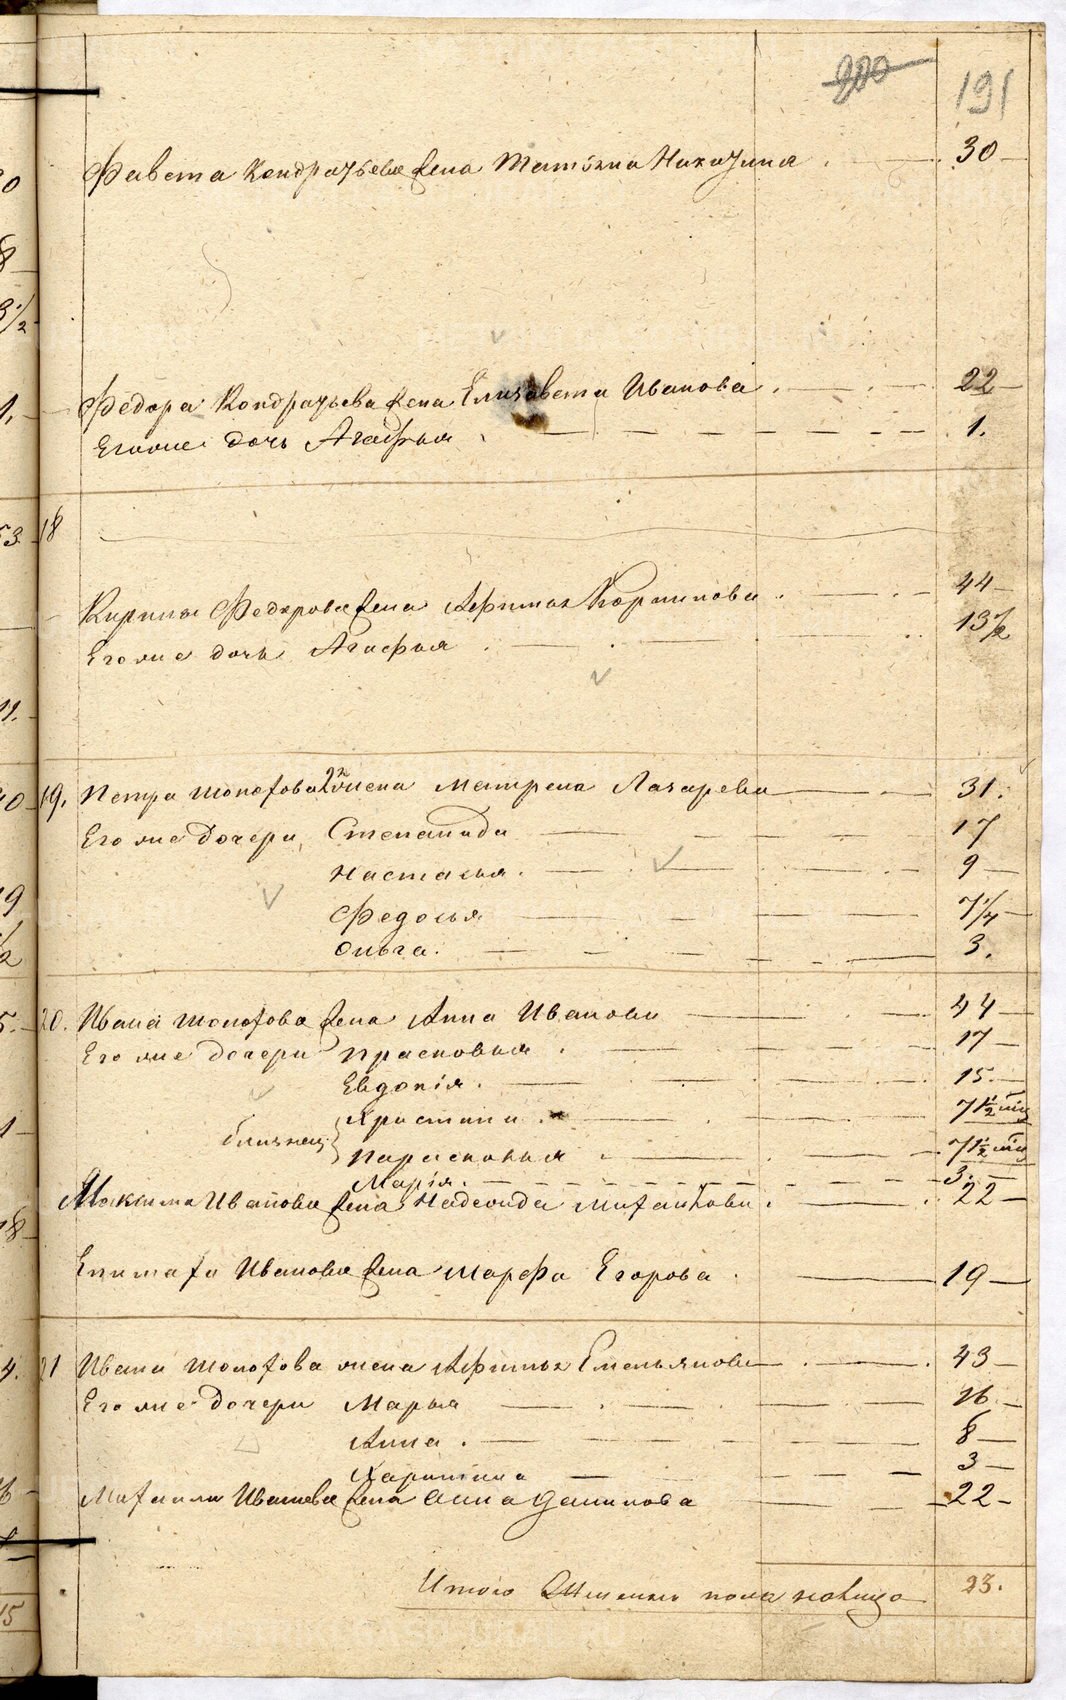 200 191
Савета Кондратьева жена Татьяна Никитина 30
Федора Кондратьева жена Елизавета Иванова 22
Его же дочь Агафья 1.
18
Кирилы Федорова жена Афимья 44
Его же дочь Агафья 13½
19. Петра 2я жена Матрена Лазарева 31.
Его же дочери, Степанида 17
Настасья. 9
Федосья 7¼
Ольга. 3.
20. Ивана жена Анна Иванова 44
Его же дочери Прасковья 17
Евдокія. 15.
Христина 7½
близнец. Парасковья 7½
Марія. 3.
Максима Иванова жена Надежда Михайлова. 22
Ипата Иванова жена Марфа Егорова 19
21 Ивана жена Афимья Емельянова 43
Его же дочери Марья 16
Анна. 8
Харитина 3
Михаила Иванова жена Анна Данилова 22
Итого Женска пола налицо 23.